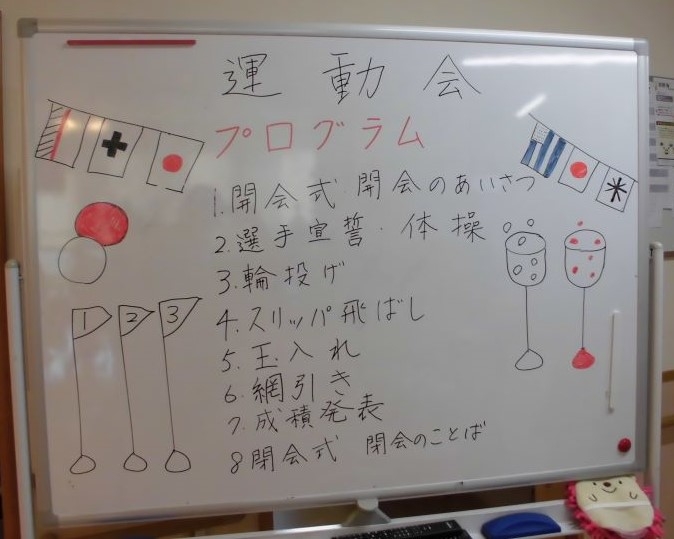 運動会
プログラム
1.開会式 開会のあいさつ
2.選手宣誓・体操
3.輪投げ
4.スリッパ飛ばし
5.玉入れ
6.網引き
7.成積発表
8閉会式 閉会のことば
1 2 3